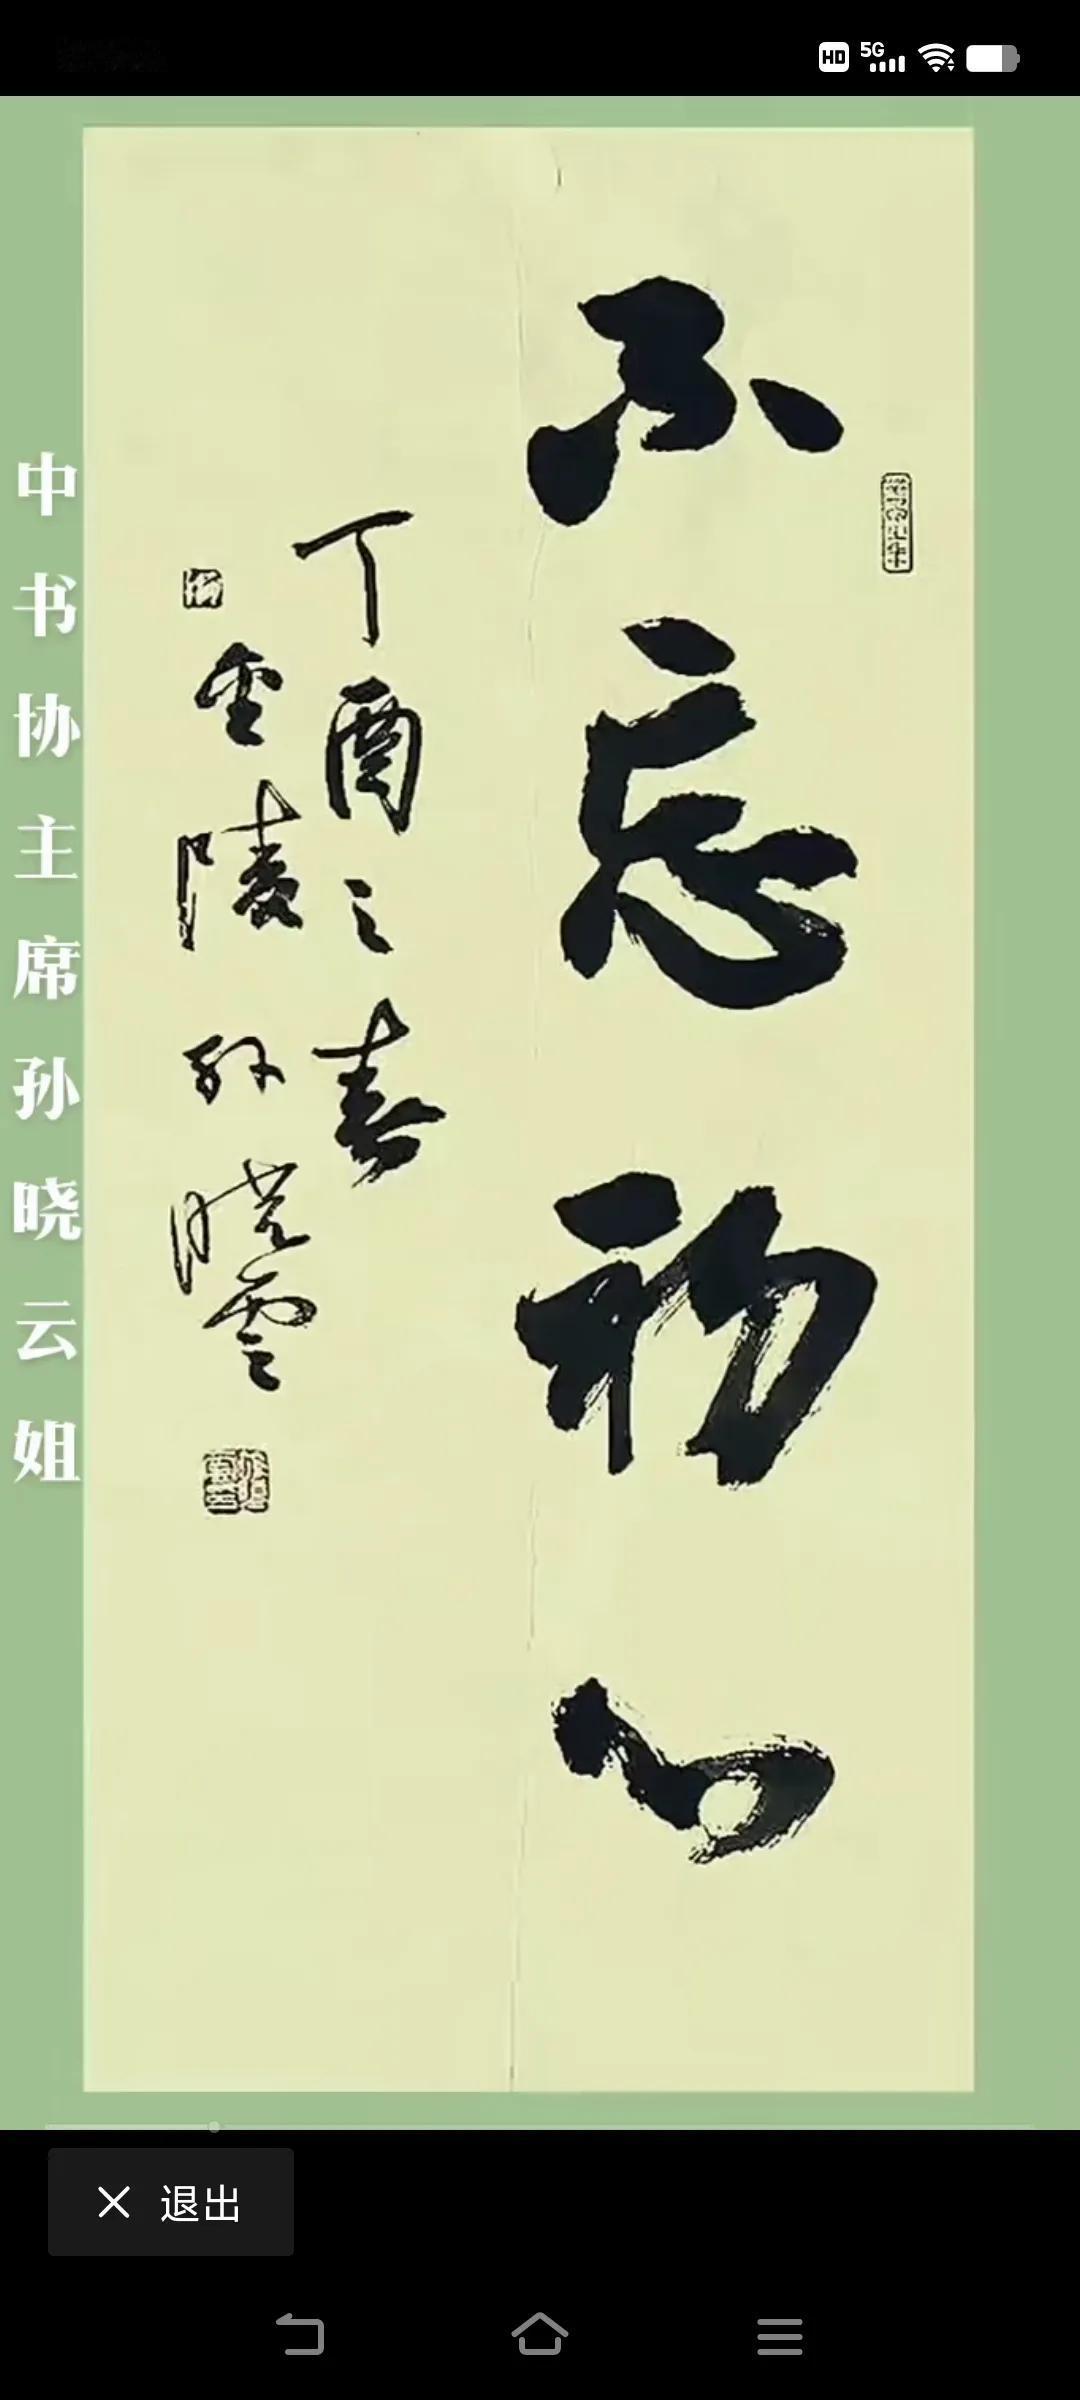 HD 5G
不忘初心
丁酉之春
金陵孙晓云
中书协主席孙晓云姐
退出